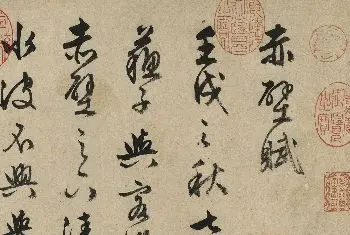 赤壁賦
壬戌之秋七
蘇子與客
赤壁之下清
水波不興舉